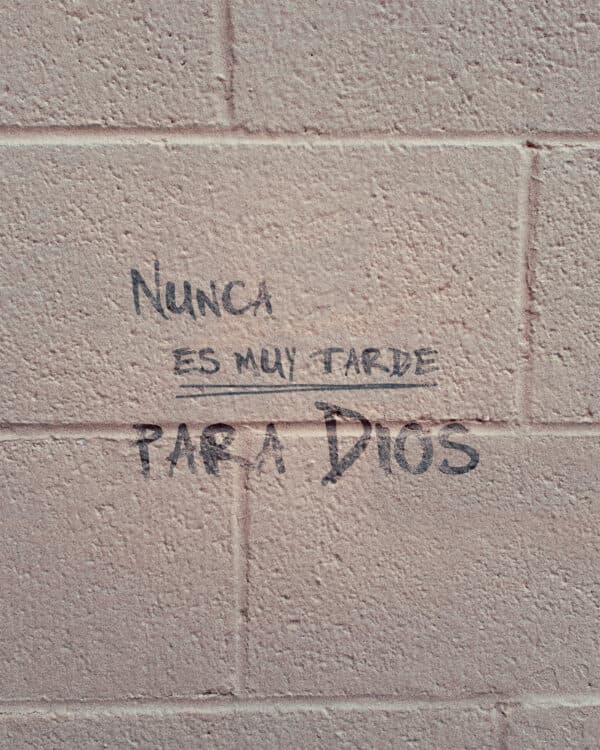 Nunca
es muy tarde
para Dios